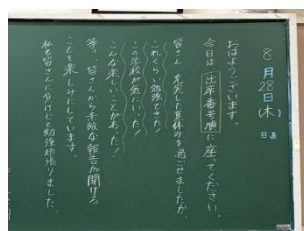 8月28日(木)
日直
おはようございます。
今日は 出席番号順 に座ってください。
皆さん、充実した夏休みを過ごせましたか。
これくらい勉強できた！
この学校が気にいった！
こんな楽しいことがあった！
等、皆さんから素敵な報告が聞ける
ことを楽しみにしています。
私も皆さんに負けじと勉強頑張りました。